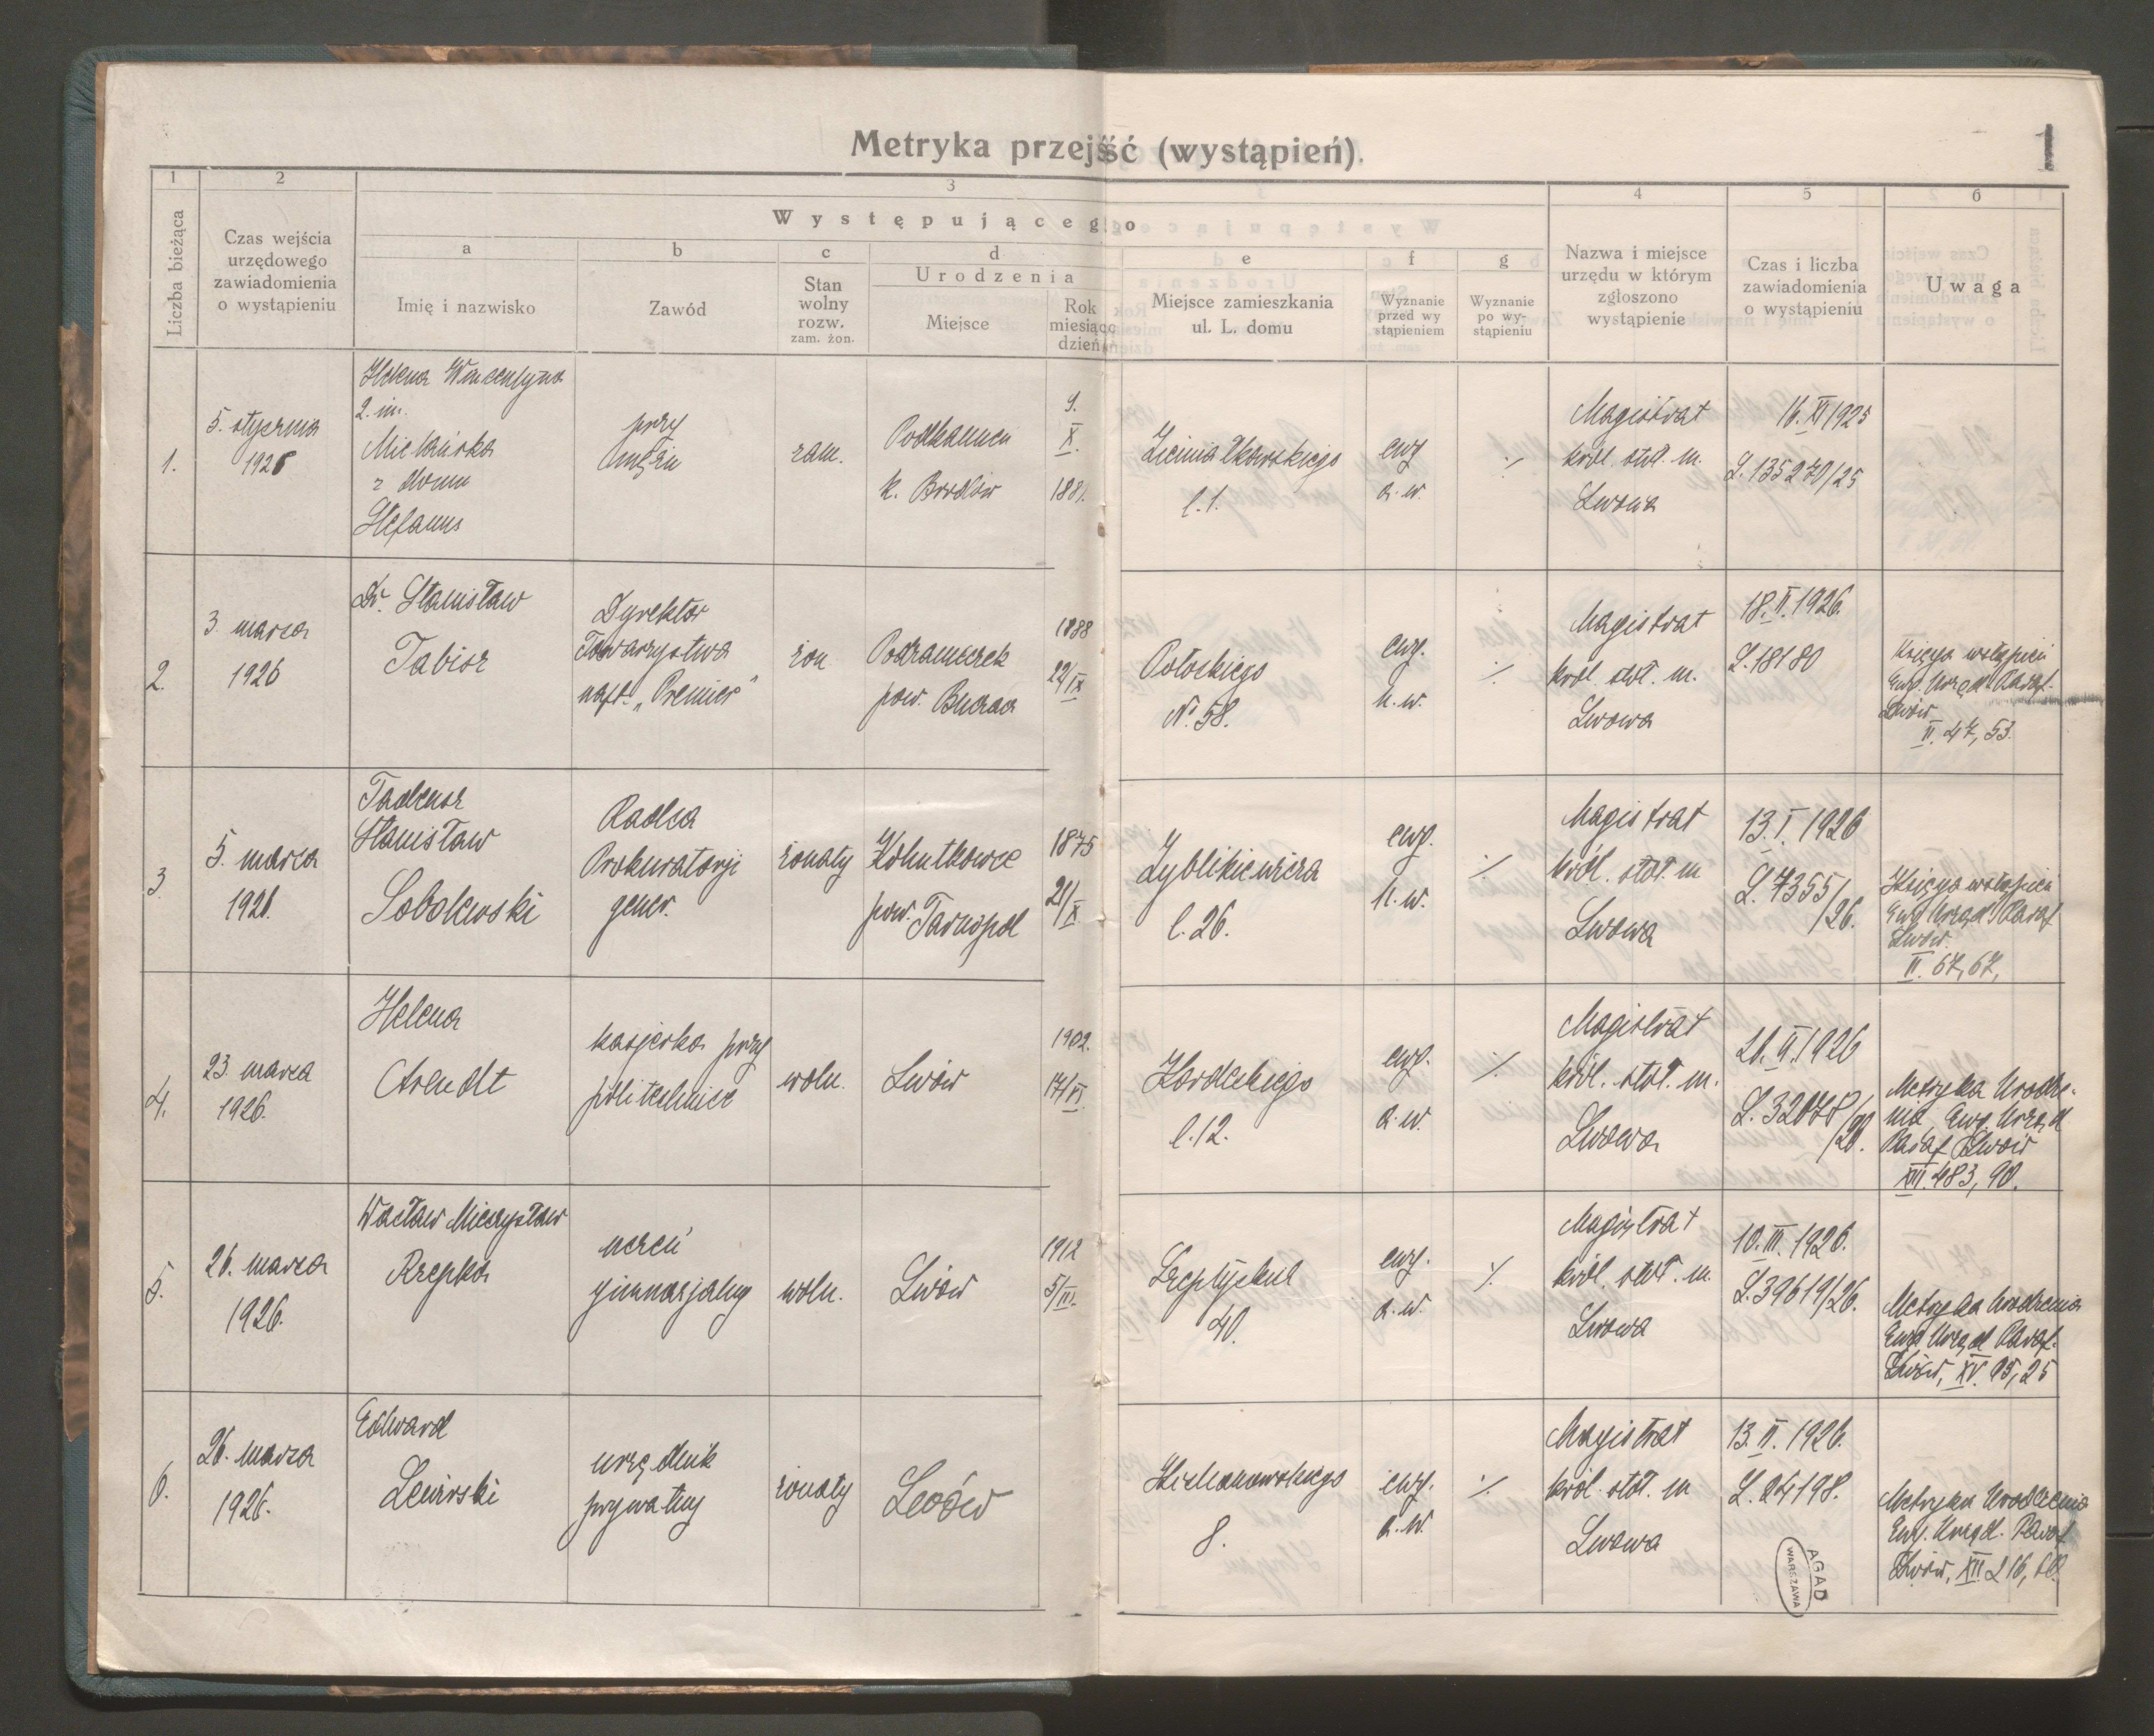 Metryka przejść (wystąpień).
1
1
2
3
4
5
6
Liczba bieżąca
Czas wejścia
urzędowego
zawiadomienia
o wystąpieniu
Występującego
a
Imię i nazwisko
b
Zawód
c
Stan
wolny
rozw.
zam. żon.
d
Urodzenia
Miejsce
Rok
miesiąc
dzień
e
Miejsce zamieszkania
ul. L. domu
f
Wyznanie
przed wy
stąpieniem
g
Wyznanie
po wy-
stąpieniu
Nazwa i miejsce
urzędu w którym
zgłoszono
wystąpienie
Czas i liczba
zawiadomienia
o wystąpieniu
Uwaga
1.
5. stycznia
1926
Helena Wincentyna
2. im.
z domu
Stefanus
przy
mężu
zam.
Podkamień
k. Brodów
9.
X.
1881.
l. 1.
ewg
a. w.
·/·
Magistrat
król. stoł. m.
Lwowa
16. XI 1925
L. 135270/25
2.
3. marca
1926
Dr. Stanisław
Tabisz
Dyrektor
Towarzystwa
naft. „Premier"
żon
Podzameczek
pow. Buczacz
1888
22/IX
Potockiego
№ 58.
ewg.
h. w.
·/·
Magistrat
król. stoł. m.
Lwowa
18. II. 1926.
L. 18180
Księga wstąpień
Ewg. Urząd Paraf.
Lwów
II. 47, 53.
3
5. marca
1926.
Tadeusz
Stanisław
Sobolewski
Radca
Prokuratorji
gener.
żonaty
pow. Tarnopol
1875
21/X.
Zyblikiewicza
l. 26.
ewg.
h. w.
·/·
Magistrat
król. stoł. m
Lwowa
13. I. 1926
L. 7355/
/26.
Księga wstąpień
Ewg Urząd Paraf
Lwów.
II. 67, 67,
4.
23. marca
1926.
Helena
Arendt
kasjerka przy
politechnice
woln.
Lwów
1902.
17/VI.
l. 12.
ewg.
a. w.
·/·
Magistrat
król. stoł. m.
Lwowa
1926
Metryka Urodze-
nia Ewg. Urząd
Paraf Lwów
XIII. 483, 90.
5.
26. marca
1926.
Wacław Mieczysław
Rzepka
uczeń
gimnazjalny
woln.
Lwów
1912
5/III.
40.
ewg.
a. w.
·/·
Magistrat
król. stoł. m.
Lwowa
10. III. 1926.
L. 39619/26.
Metryka Urodzenia
Ewg Urząd Paraf.
Lwów, XV. 95, 25
6.
26. marca
1926.
Edward
urzędnik
prywatny
żonaty
Lwów
8.
ewg.
a. w.
·/·
Magistrat
król. stoł. m
Lwowa
13. II. 1926.
L. 24198.
Metryka Urodzenia
Ewg. Urząd. Paraf
Lwów, XII. 216,
AGAD
WARSZAWA